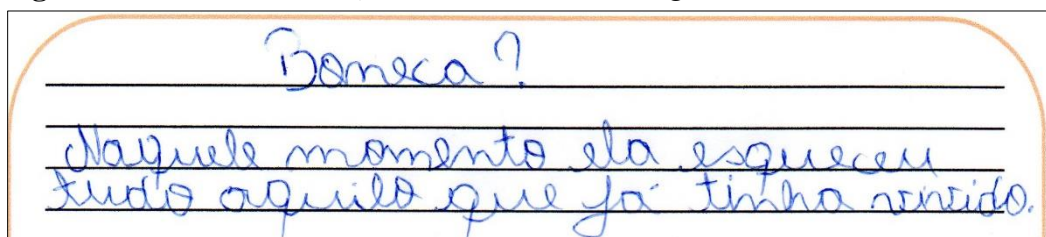 Boneca?
Naquele momento ela esqueceu
tudo aquilo que já tinha vivido.